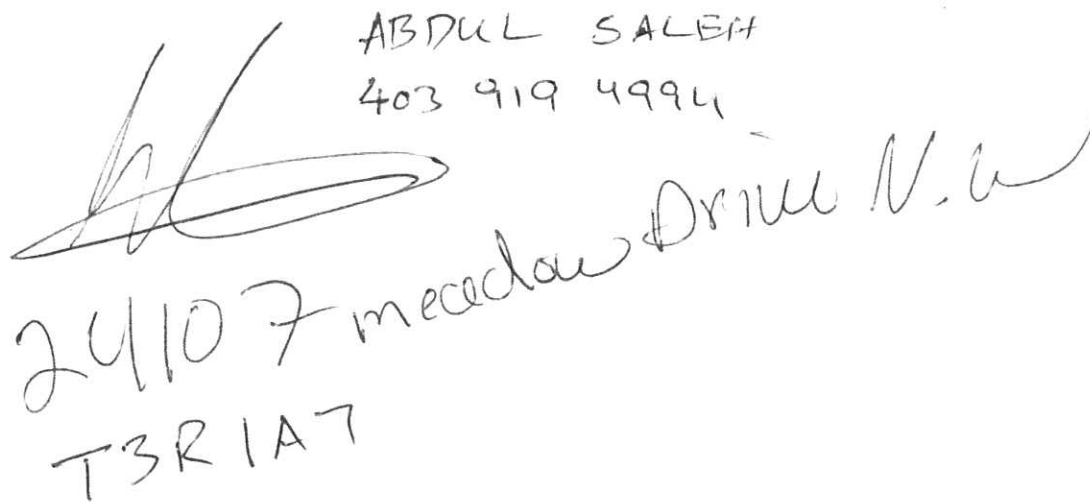 ABDUL SALEH
403 919 4994
24107 meadow Drive N.W
T3R 1A7